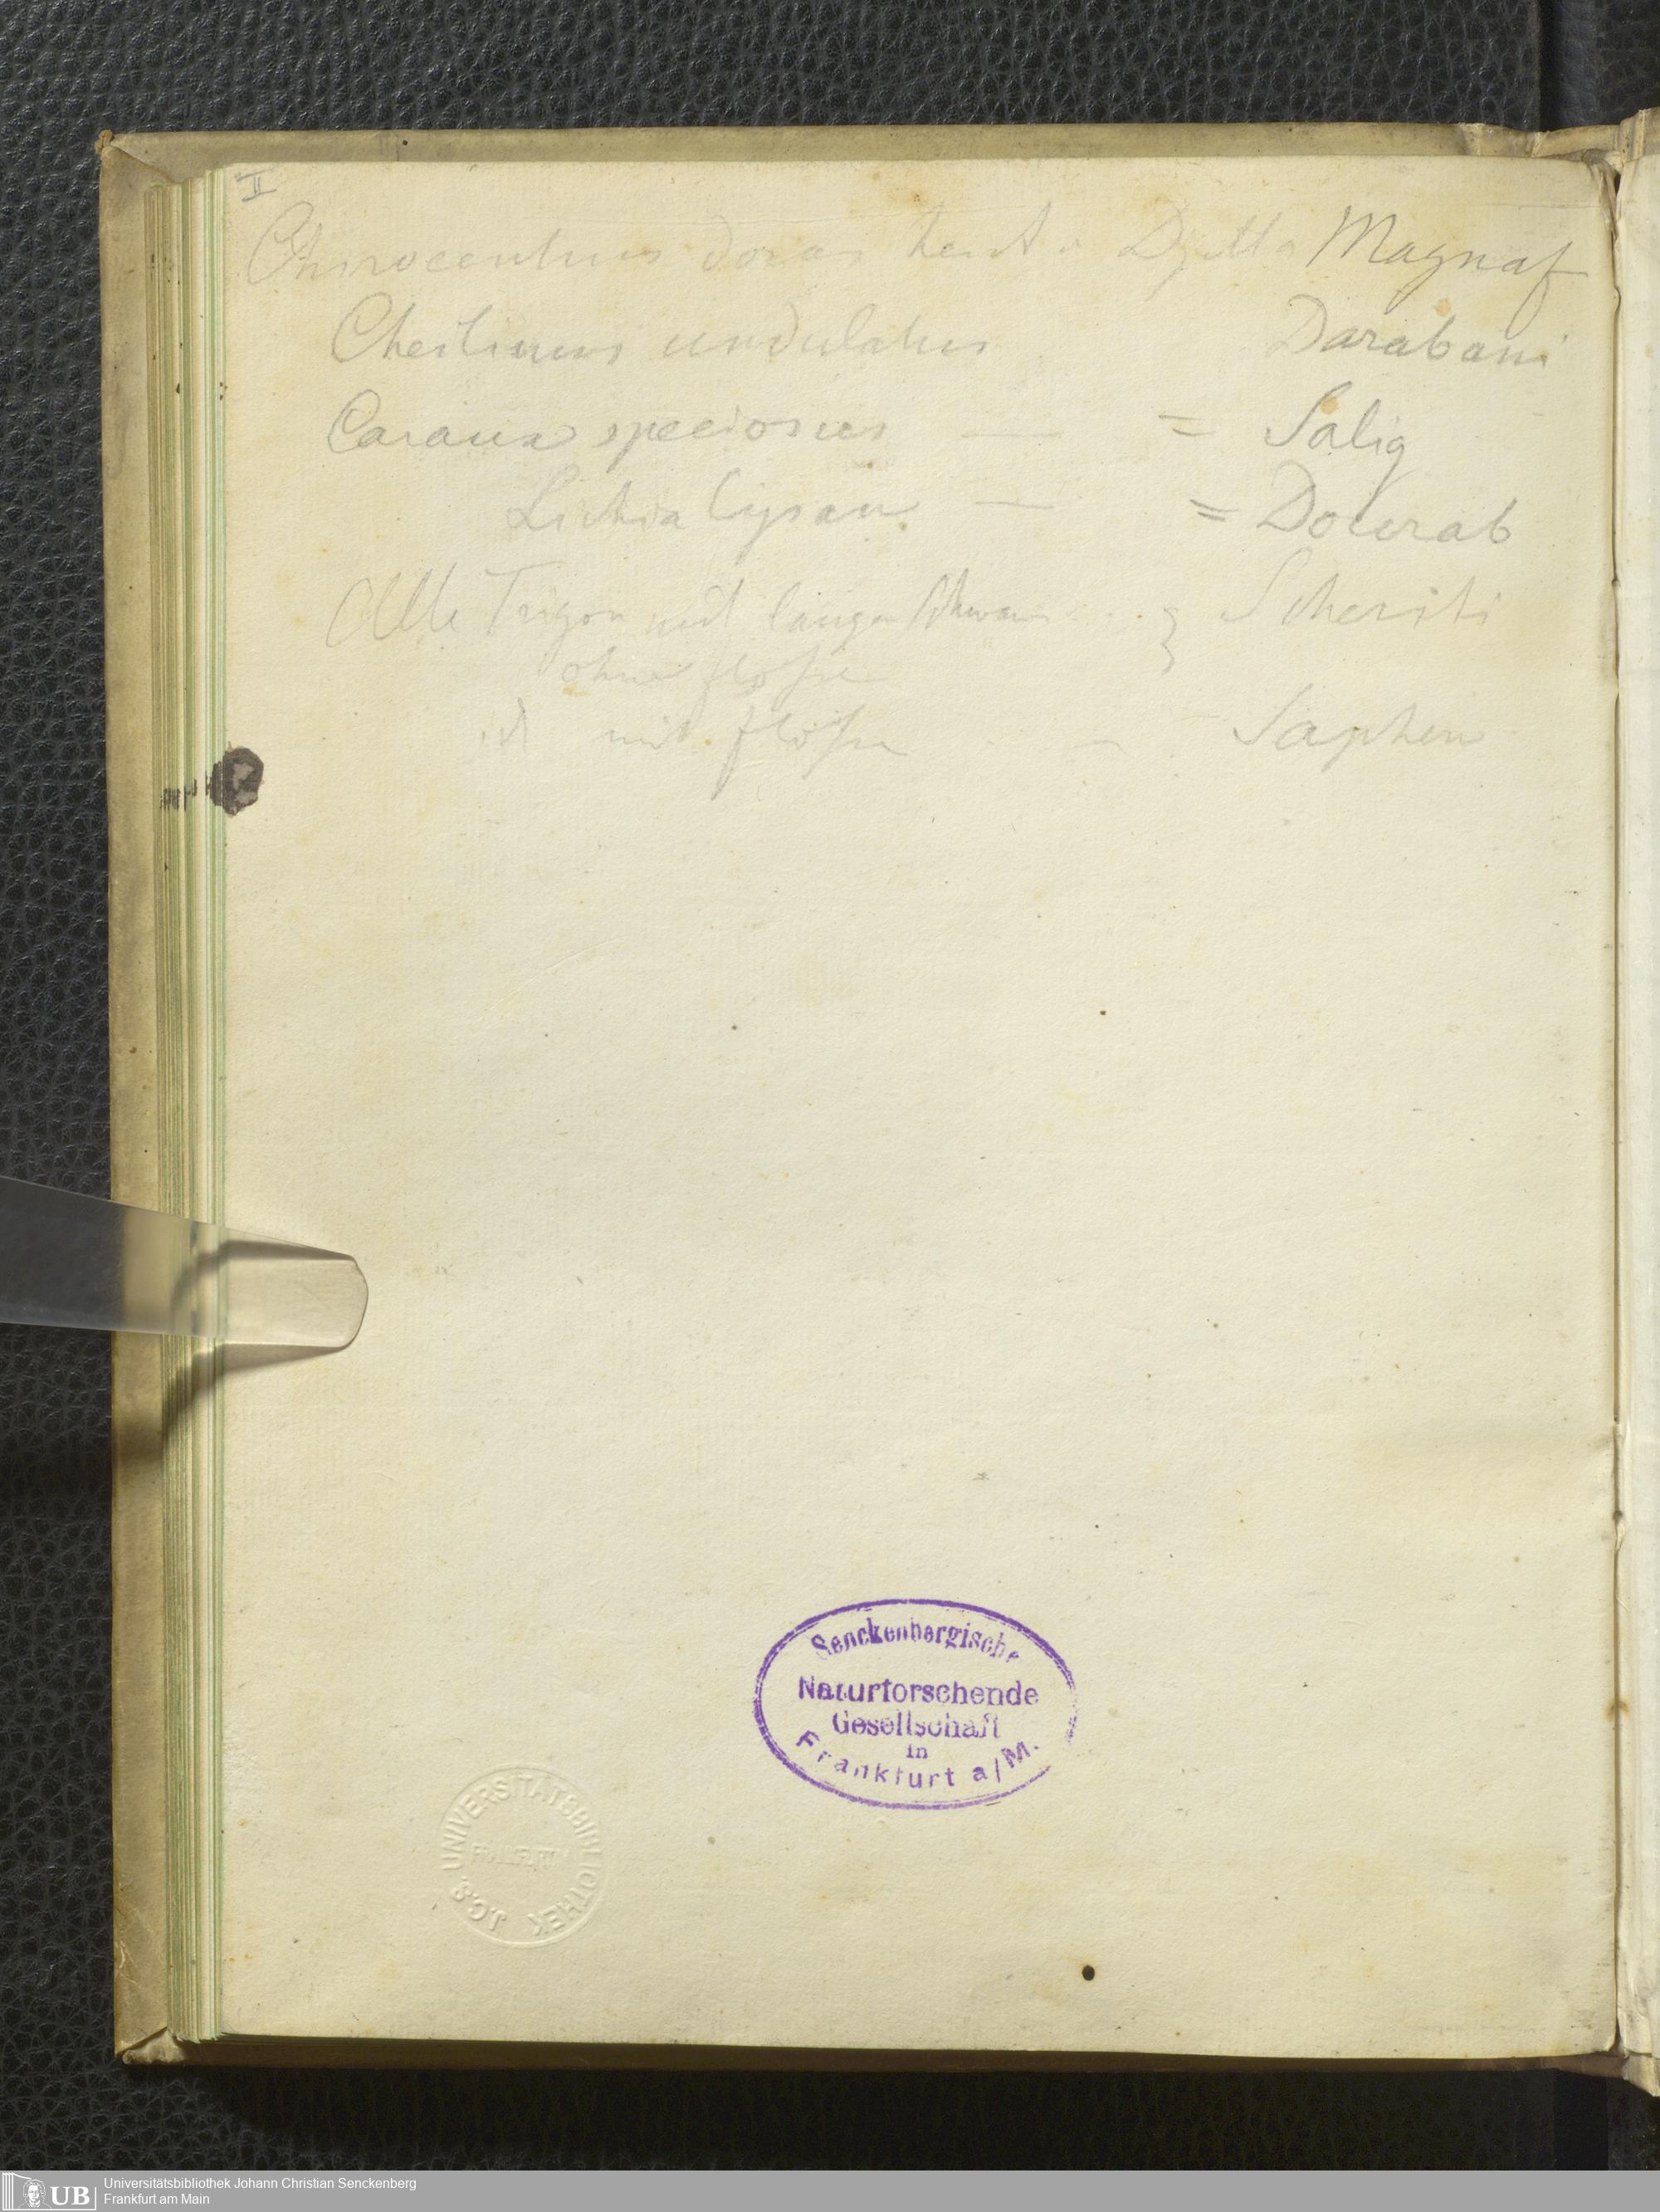 II
Chirocentrus dorab heist in Djetta Magnaf
Cheilinus undulatus Darabani
Caranx speciosus — = Salig
Lichia lysan — = Dourab
Alle Trigon mit langen Schwanz } Scheriti
ohne flosse
id mit flosse — Saphen
Senckenbergische
Naturforschende
Gesellschaft
in
Frankfurt a/M.
J.C.S. UNIVERSITÄTSBIBLIOTHEK
FRANKFURT
UB
Universitätsbibliothek Johann Christian Senckenberg
Frankfurt am Main